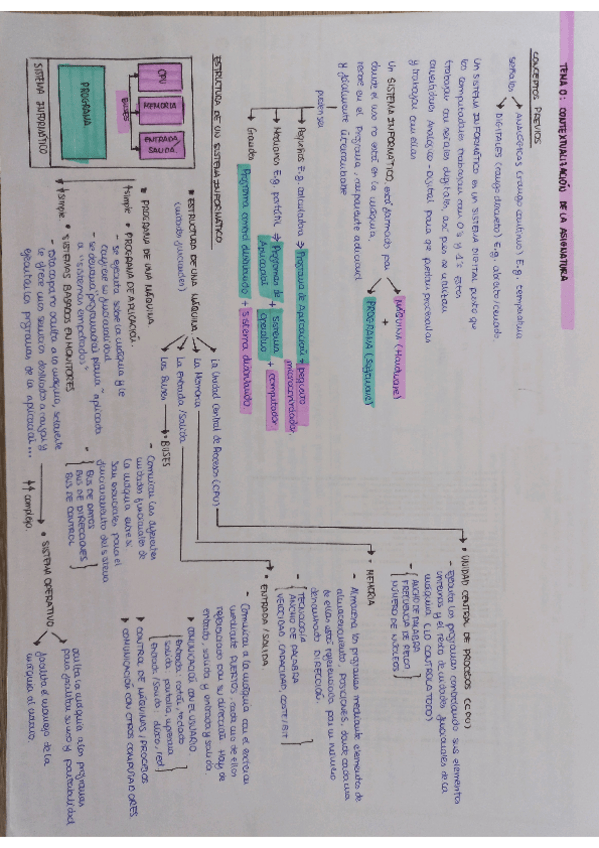 TEMA 0: CONTEXTUALIZACIÓN DE LA ASIGNATURA
CONCEPTOS PREVIOS
señales
ANALÓGICAS (rango continuo) E.g. temperatura
DIGITALES (rango discreto) E.g. abierto/cerrado
Un SISTEMA INFORMÁTICO es un SISTEMA DIGITAL puesto que
los computadores trabajan con 0's y 1's. Estos
trabajan con señales digitales, así pues se utilizan
convertidores Analógico-Digital para que puedan procesarlas
y trabajar con ellas
Un SISTEMA INFORMÁTICO está formado por
MÁQUINA (Hardware)
+
PROGRAMA (Software)
donde el uso no está en la máquina,
recae en el Programa,
y
pueden ser
Pequeños E.g. calculadora → Programa de Aplicación + pequeño
microcontrolador.
Mediana E.g. portátil → Programas de + sistema + computador
Aplicación operativo
Grande Programa control distribuido + sistema distribuido
ESTRUCTURA DE UN SISTEMA INFORMÁTICO
CPU
MEMORIA
ENTRADA
SALIDA
BUSES
PROGRAMA
SISTEMA INFORMÁTICO
• ESTRUCTURA DE UNA MÁQUINA
(unidades funcionales)
La Unidad Central de Procesos (CPU)
La Memoria
La Entrada/Salida
Los Buses
• UNIDAD CENTRAL DE PROCESOS (CPU)
- Ejecuta los programas controlando sus elementos
internos y el resto de unidades funcionales de la
máquina (LO CONTROLA TODO)
ANCHO DE PALABRA
FRECUENCIA DE RELOJ
NÚMERO DE NÚCLEOS
• MEMORIA
- Almacena los programas mediante elementos de
almacenamiento, POSICIONES, donde cada una
de ellas está referenciada por un número
denominado DIRECCIÓN.
TECNOLOGÍA
ANCHO DE PALABRA
VELOCIDAD, CAPACIDAD, COSTE/BIT
• ENTRADA/SALIDA
- Comunica a la máquina con el exterior
mediante PUERTOS, cada uno de ellos
relacionado con su dirección. Hay de
entrada, salida y entrada y salida
COMUNICACIÓN CON EL USUARIO
Entrada: ratón, teclado
salida: pantalla, impresora
Entrada/Salida: disco, red
CONTROL DE MÁQUINAS/PROCESOS
COMUNICACIÓN CON OTROS COMPUTADORES
• BUSES
- Comunican las diferentes
unidades funcionales de
la máquina entre sí
son esenciales para el
funcionamiento del sistema
BUS DE DATOS
BUS DE DIRECCIONES
BUS DE CONTROL
• PROGRAMA DE UNA MÁQUINA
↑simple • PROGRAMA DE APLICACIÓN.
- se ejecuta sobre la máquina y le
confiere su funcionalidad
- se denomina
a "sistemas empotrados"
↑simple • SISTEMAS BASADOS EN MONITORES
- Esta capa no oculta la máquina, solamente
se ofrece unos servicios destinados a cargar y
ejecutar los programas de la aplicación...
↑↑ complejo. • SISTEMA OPERATIVO
oculta la máquina a los programas
para facilitar su uso y portabilidad
facilita el manejo de la
máquina al usuario